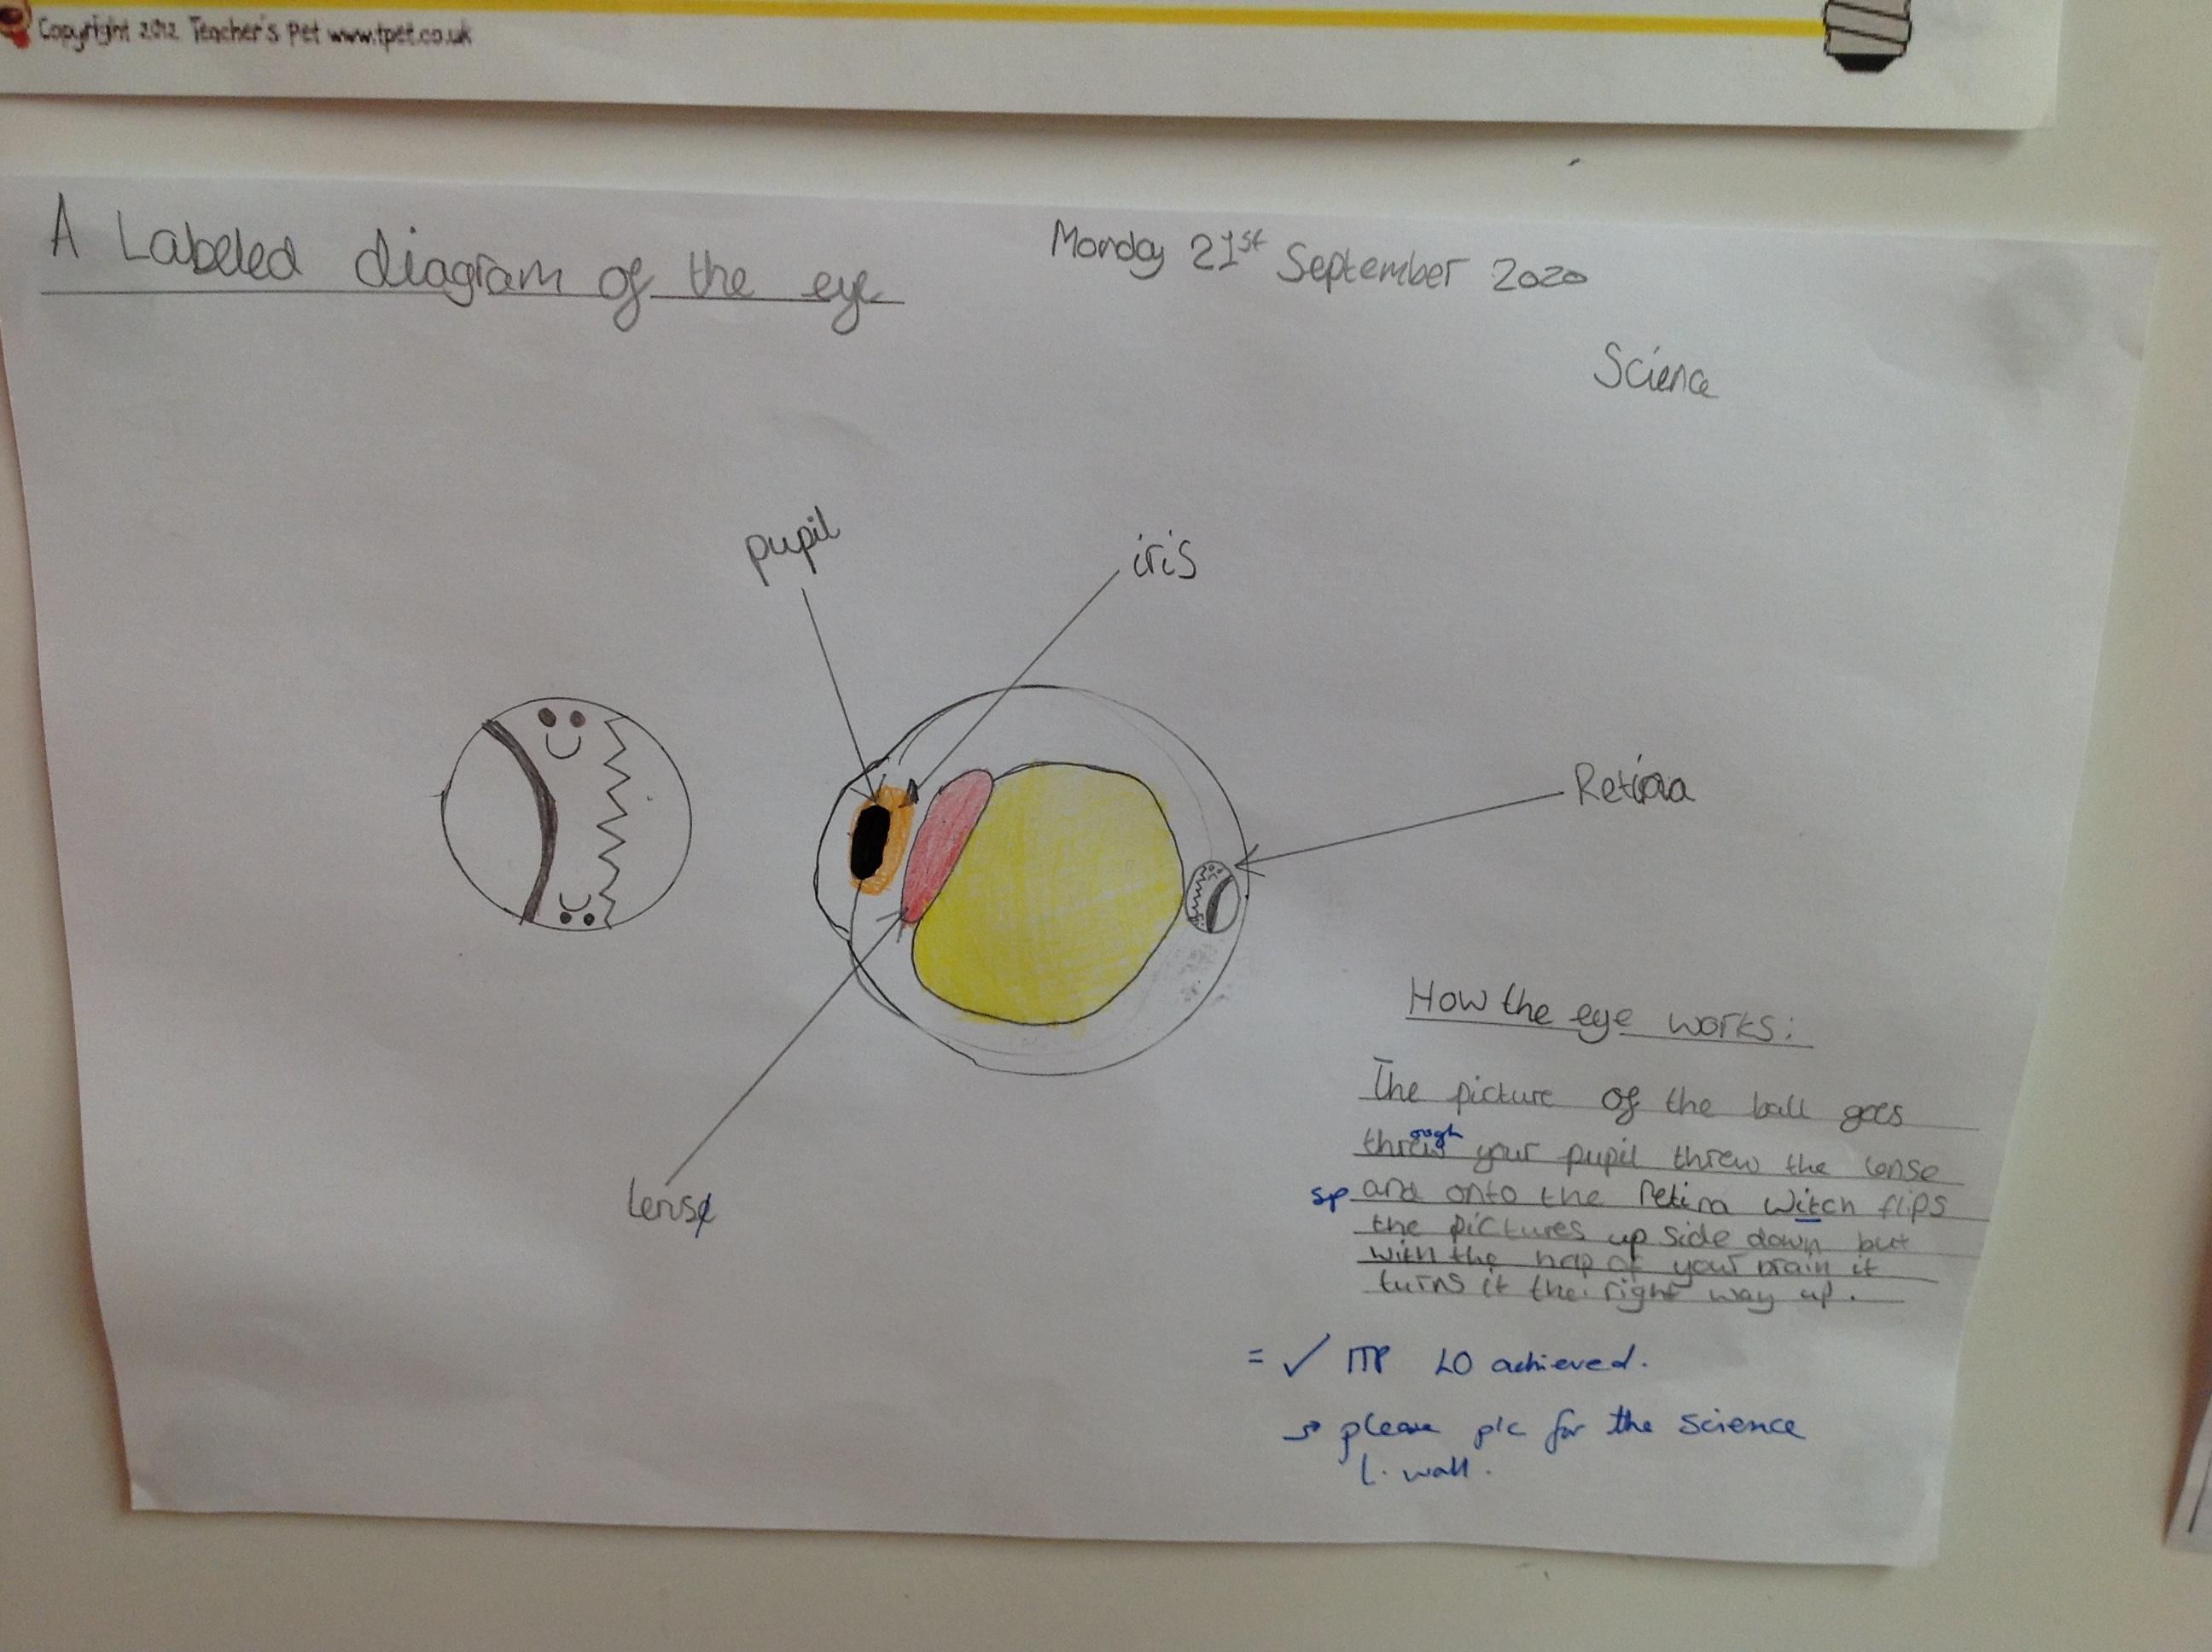 Copyright 2012 Teacher's Pet www.tpet.co.uk
A Labeled diagram of the eye
Monday 21st September 2020
Science
pupil
iris
Retina
lense
How the eye works:
The picture of the ball goes
threw ough your pupil threw the lense
sp and onto the Retina witch flips
the pictures up side down but
with the help of your brain it
turns it the right way up.
= ✓ ITP LO achieved.
→ please pic for the science
L. wall.